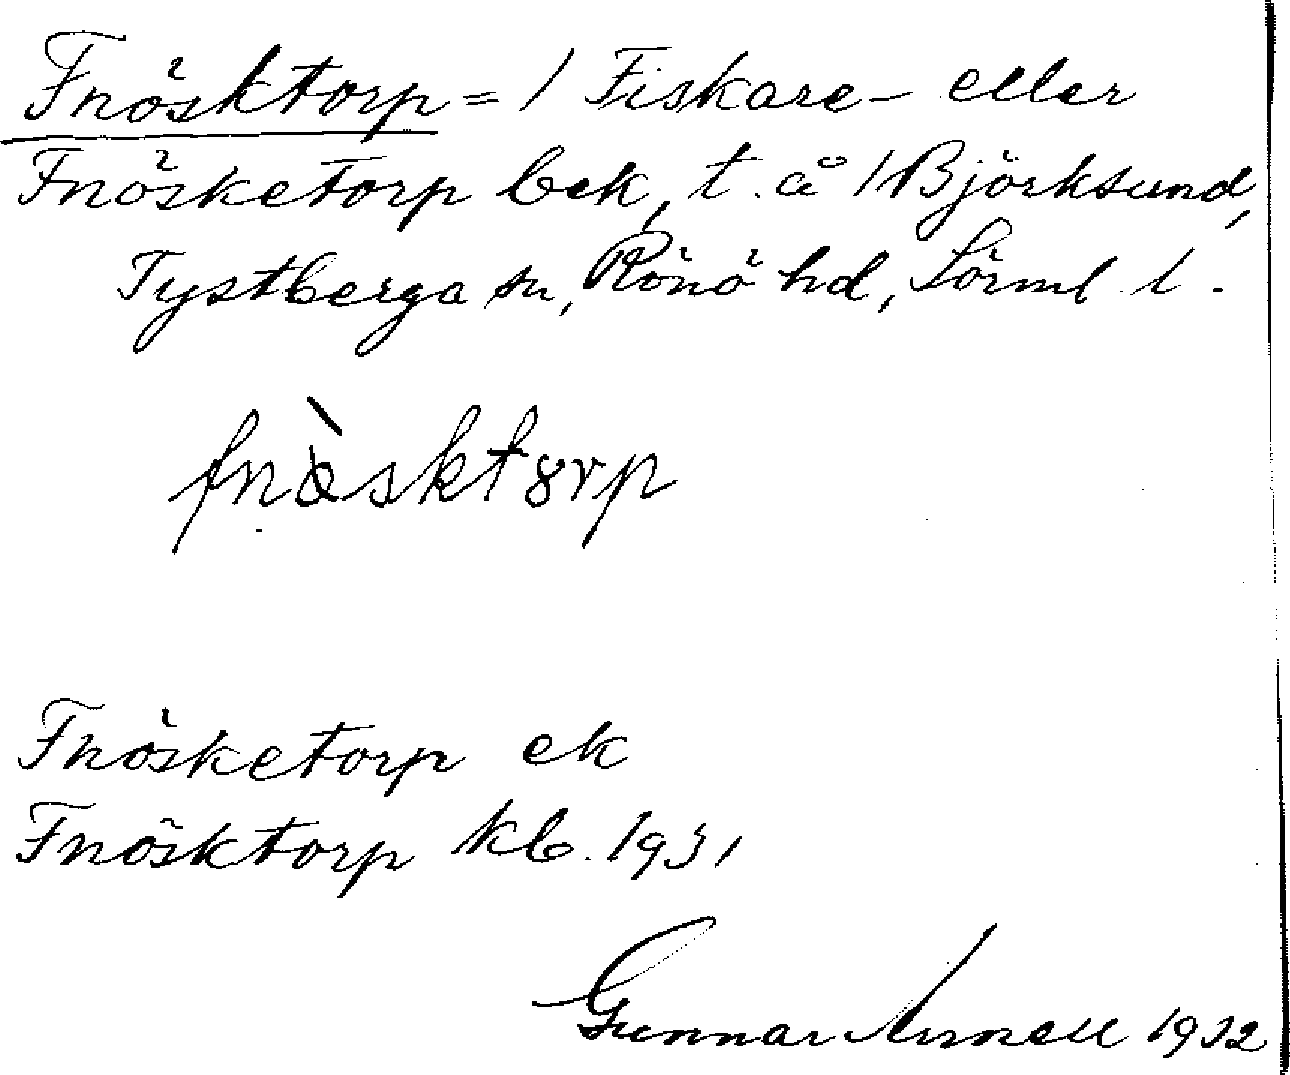 Fnösktorp = 1 Fiskare- eller
Fnösketorp bek, t. å 1 Björksund,
Tystberga sn, Rönö hd, Sörml l.
fnö̀sktorp
Fnösketorp ek
Fnösktorp kb. 1931
Gunnar Arnell 1932